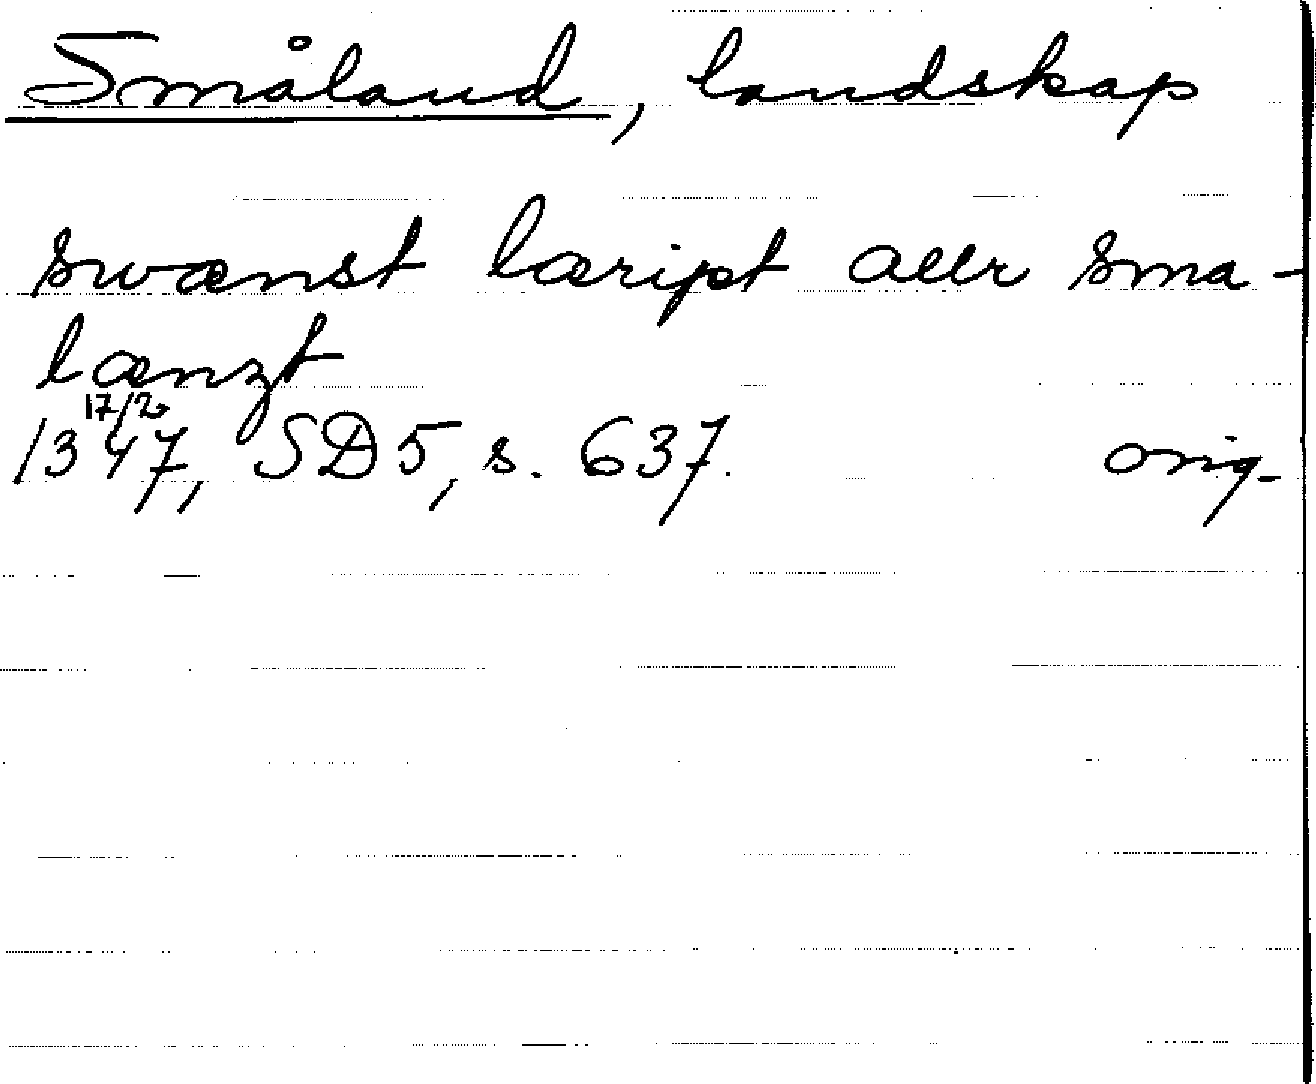 Småland, landskap
swænst læript aller sma-
lænzt
17/2
1347, SD5, s. 637. orig.